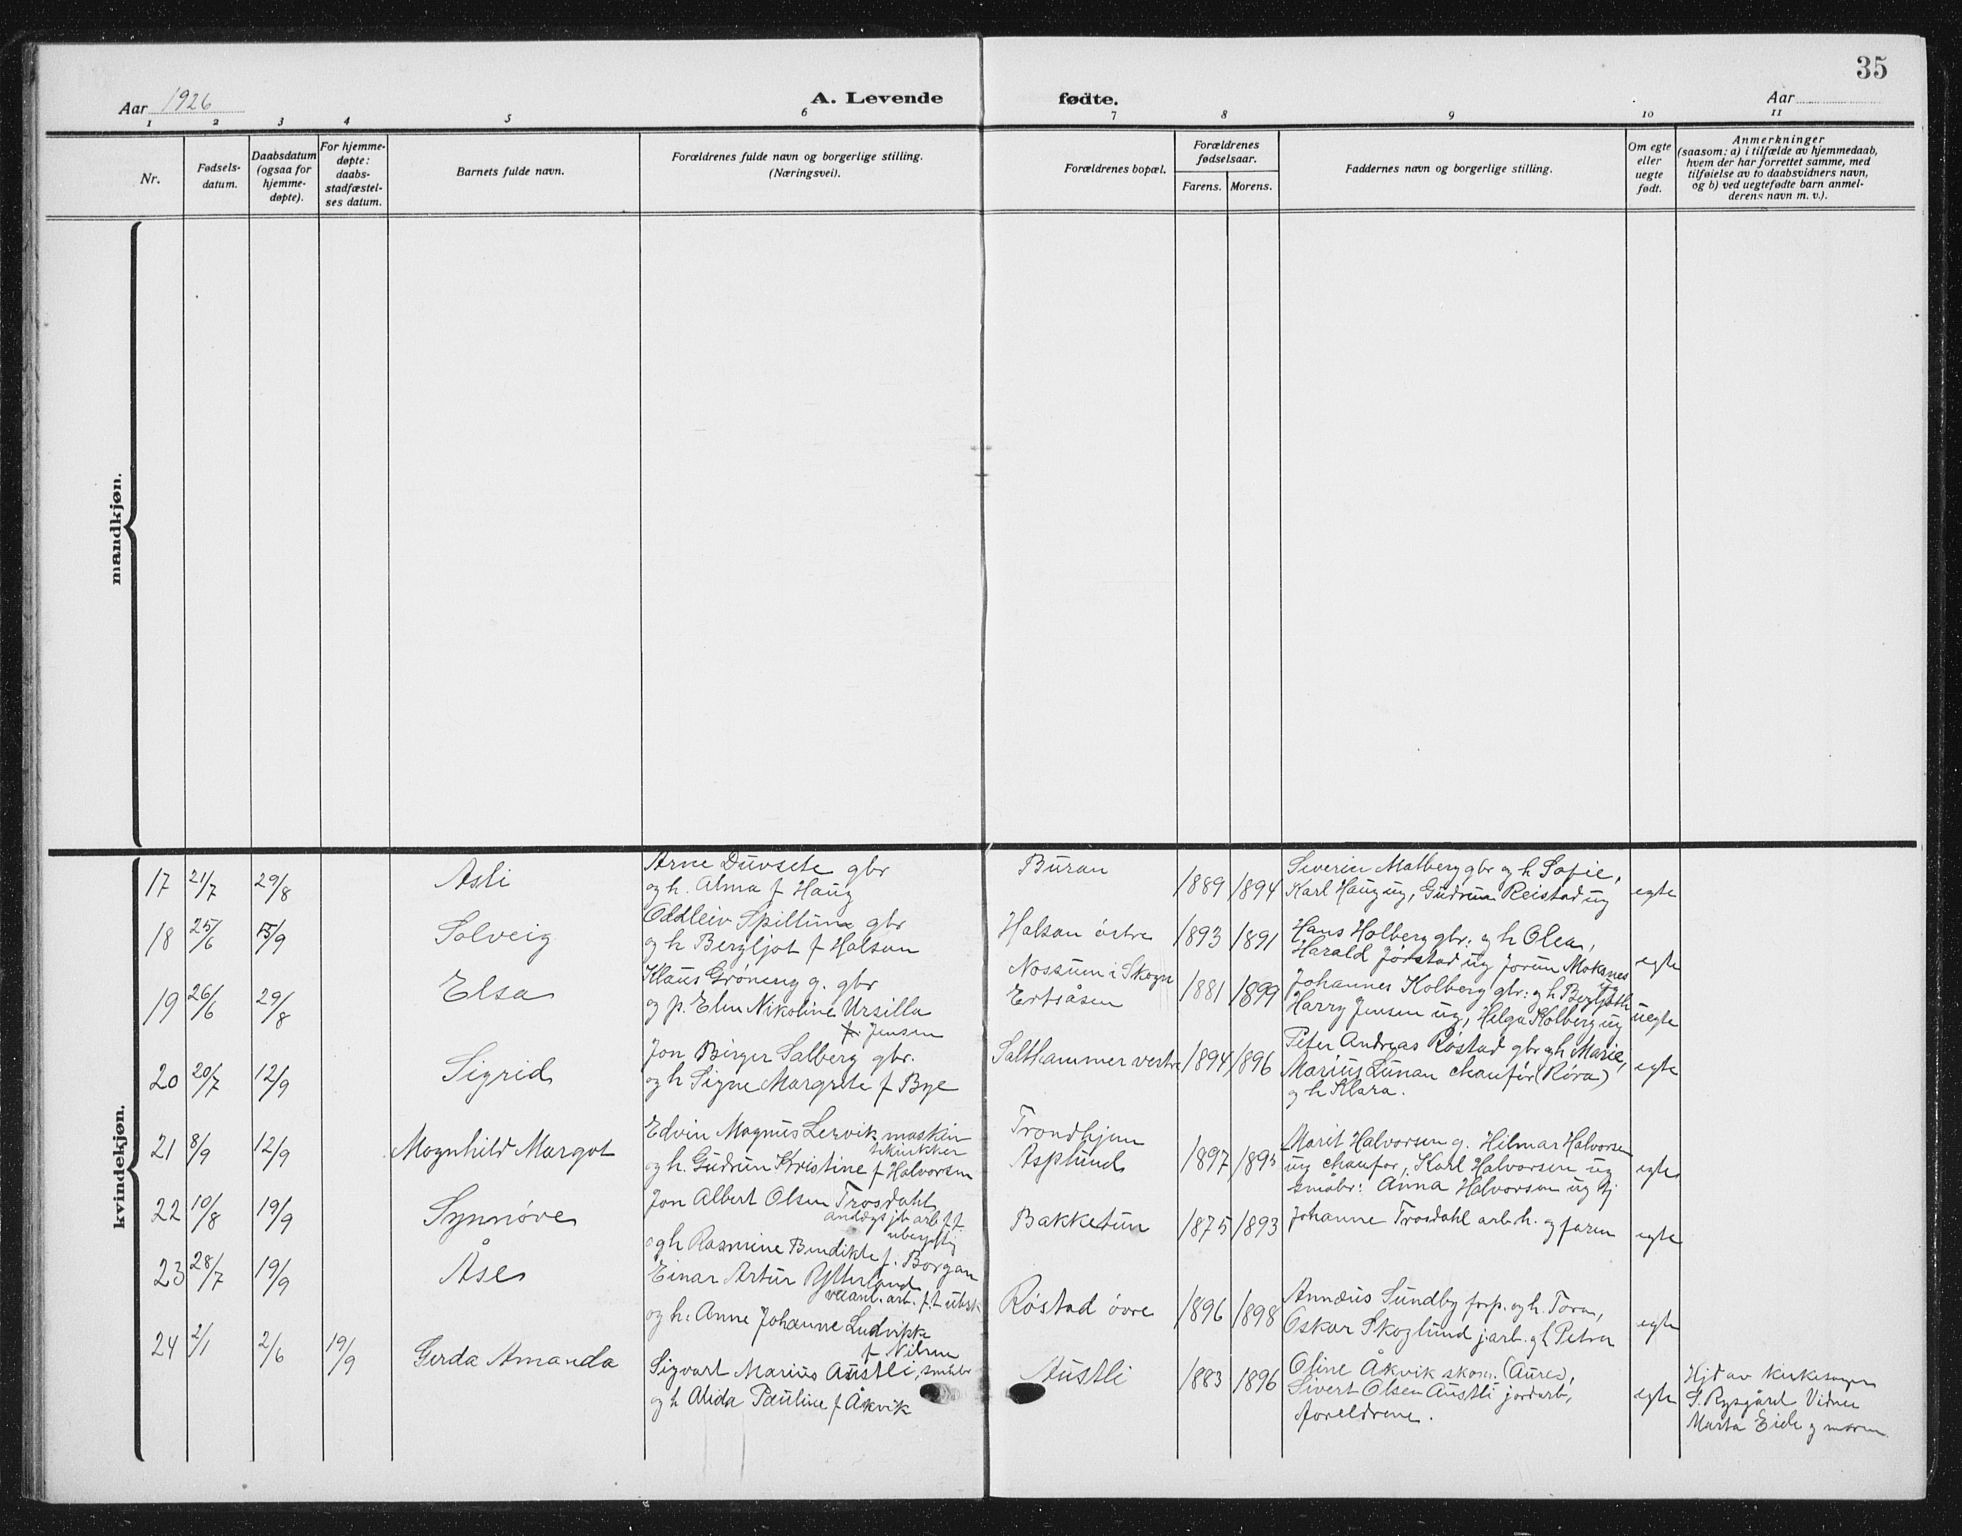 35
Aar 1926
A. Levende
fødte.
Aar
1 2 3 4 5 6 7 8 9 10 11
Nr.
Fødsels-
datum.
Daabsdatum
(ogsaa for
hjemme-
døpte).
For hjemme-
døpte:
daabs-
stadfæstel-
ses datum.
Barnets fulde navn.
Forældrenes fulde navn og borgerlige stilling.
(Næringsvei).
Forældrenes bopæl.
Forældrenes
fødselsaar.
Farens. Morens.
Faddernes navn og borgerlige stilling.
Om egte
eller
uegte
født.
Anmerkninger
(saasom: a) i tilfælde av hjemmedaab,
hvem der har forrettet samme, med
tilføielse av to daabsvidners navn,
og b) ved uegtefødte barn anmel-
derens navn m. v.).
mandkjøn.
kvindekjøn.
17 21/7 29/8 Asli
Arne Duvsete gbr
og h. Alma f Haug
Buran
1889 1894
Severin Malberg gbr og h Sofie,
Karl Haug ug, Gudrun Reistad ug
egte
18 25/6 5/9 Solveig
Oddleiv Spillum gbr
og h Bergljot f Halsan
Halsan östre
1893 1891
Hans Holberg gbr. og h Olea,
Harald Jörstad ug Jorun Mokanes
ug
egte
19 26/6 29/8 Elsa
Klaus Gröneng g. gbr
og p. Elen Nikoline Ursilla
f. Jensen
Nossum i Skogn
Ertsåsen
1881 1899
Johannes Kolberg gbr. og h Bergljoth
Harry Jensen ug, Helga Kolberg ug
uegte
20 20/7 12/9 Sigrid
Jon Birger Salberg gbr.
og h Signe Margrete f Bye
Salthammer vestre
1894 1896
Peter Andreas Röstad gbr og h Marie,
Marius Lunan chauför (Röra)
og h Klara.
egte
21 8/9 12/9 Magnhild Margot
Edvin Magnus Lervik maskin
og h. Gudrun Kristine f Halvorsen
Trondhjem
Asplund
1897 1895
Marit Halvorsen g. Hilmar Halvorsen
ug chaufør, Karl Halvorsen ug
småbr. Anna Halvorsen ug tj
egte
22 10/8 19/9 Synnöve
Jon Albert Olsen Trosdahl
og h Rasmine Bendikte f. Borgan
Bakketun
1875 1893
Johanne Trosdahl arb. h. og faren
egte
23 28/7 19/9 Åse
Einar Artur Ytterland
og h. Anne Johanne Ludvikke
f Nilsen
Röstad övre
1896 1898
Annæus Sundby forp. og h. Tora,
Oskar Skoglund j.arb. gh Petra
egte
24 2/1 2/6 19/9 Gerda Amanda
Sigvart Marius Austli, småbr
og h Alida Pauline f Åkvik
Austli
1883 1896
Oline Åkvik skom. (Aure),
Sivert Olsen Austli jordarb,
foreldrene.
egte
Hjd av kirkesanger
S. Rysgård Vidner
Marta Eide og moren